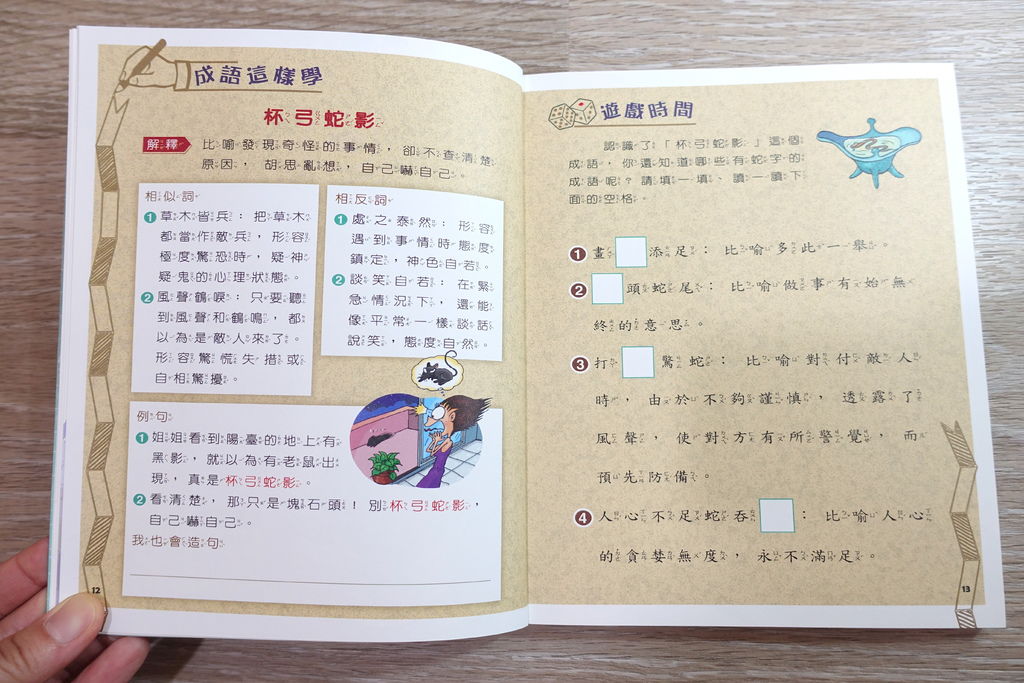 成語這樣學
杯弓蛇影
解釋
比喻發現奇怪的事情，卻不查清楚
原因，胡思亂想，自己嚇自己。
相似詞
1 草木皆兵：把草木
都當作敵兵，形容
極度驚恐時，疑神
疑鬼的心理狀態。
2 風聲鶴唳：只要聽
到風聲和鶴鳴，都
以為是敵人來了。
形容驚慌失措或
自相驚擾。
相反詞
1 處之泰然：形容
遇到事情時態度
鎮定，神色自若。
2 談笑自若：在緊
急情況下，還能
像平常一樣談話
說笑，態度自然。
例句
1 姐姐看到陽臺的地上有
黑影，就以為有老鼠出
現，真是杯弓蛇影。
2 看清楚，那只是塊石頭！別杯弓蛇影，
自己嚇自己。
我也會造句
12
遊戲時間
認識了「杯弓蛇影」這個
成語，你還知道哪些有蛇字的
成語呢？請填一填、讀一讀下
面的空格。
1 畫 添足：比喻多此一舉。
2 頭蛇尾：比喻做事有始無
終的意思。
3 打 驚蛇：比喻對付敵人
時，由於不夠謹慎，透露了
風聲，使對方有所警覺，而
預先防備。
4 人心不足蛇吞 ：比喻人心
的貪婪無度，永不滿足。
13